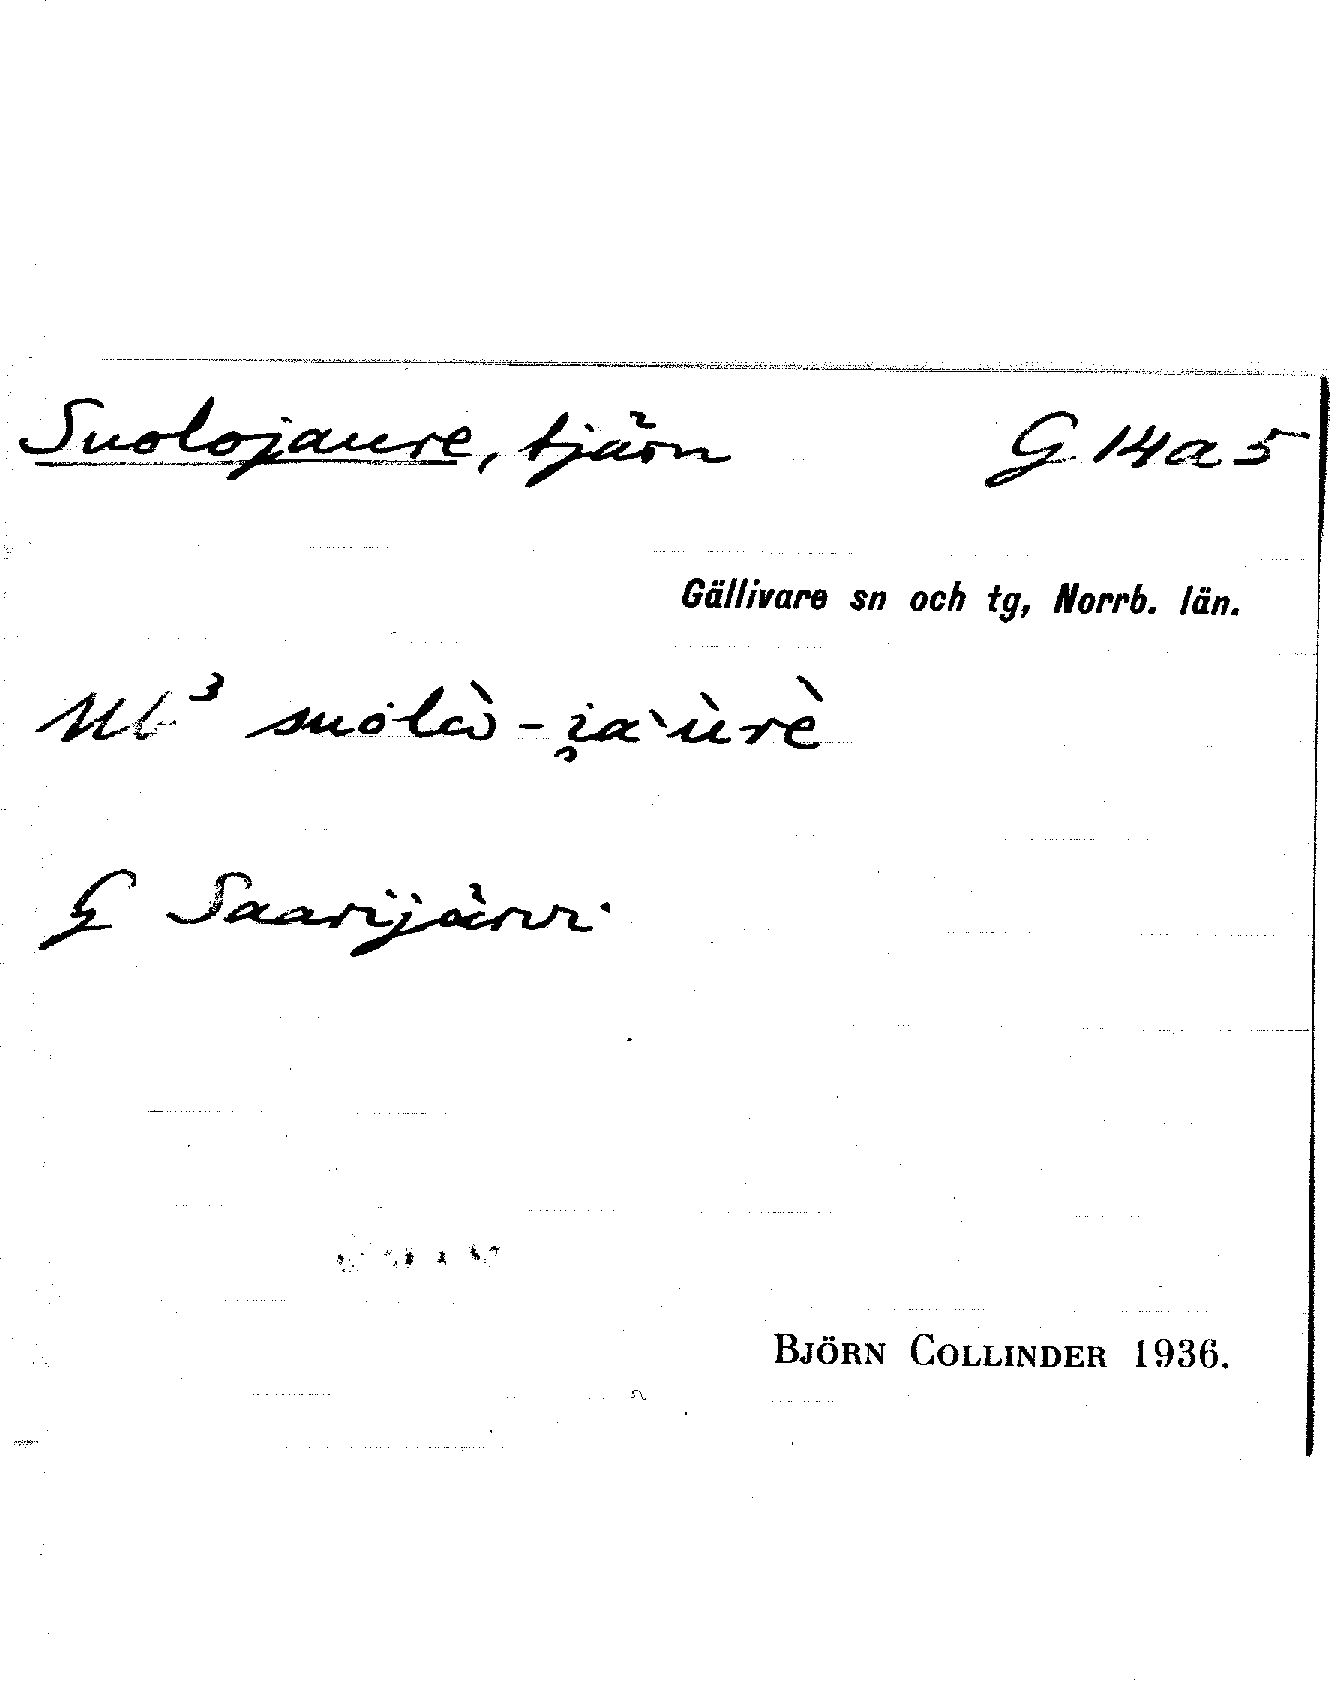 Suolojaure, tjärn G 14 a 5
Gällivare sn och tg, Norrb. län.
Nb³ suolò̀ - i̯a`ùrè
G Saarijärvi
BJÖRN COLLINDER 1936.